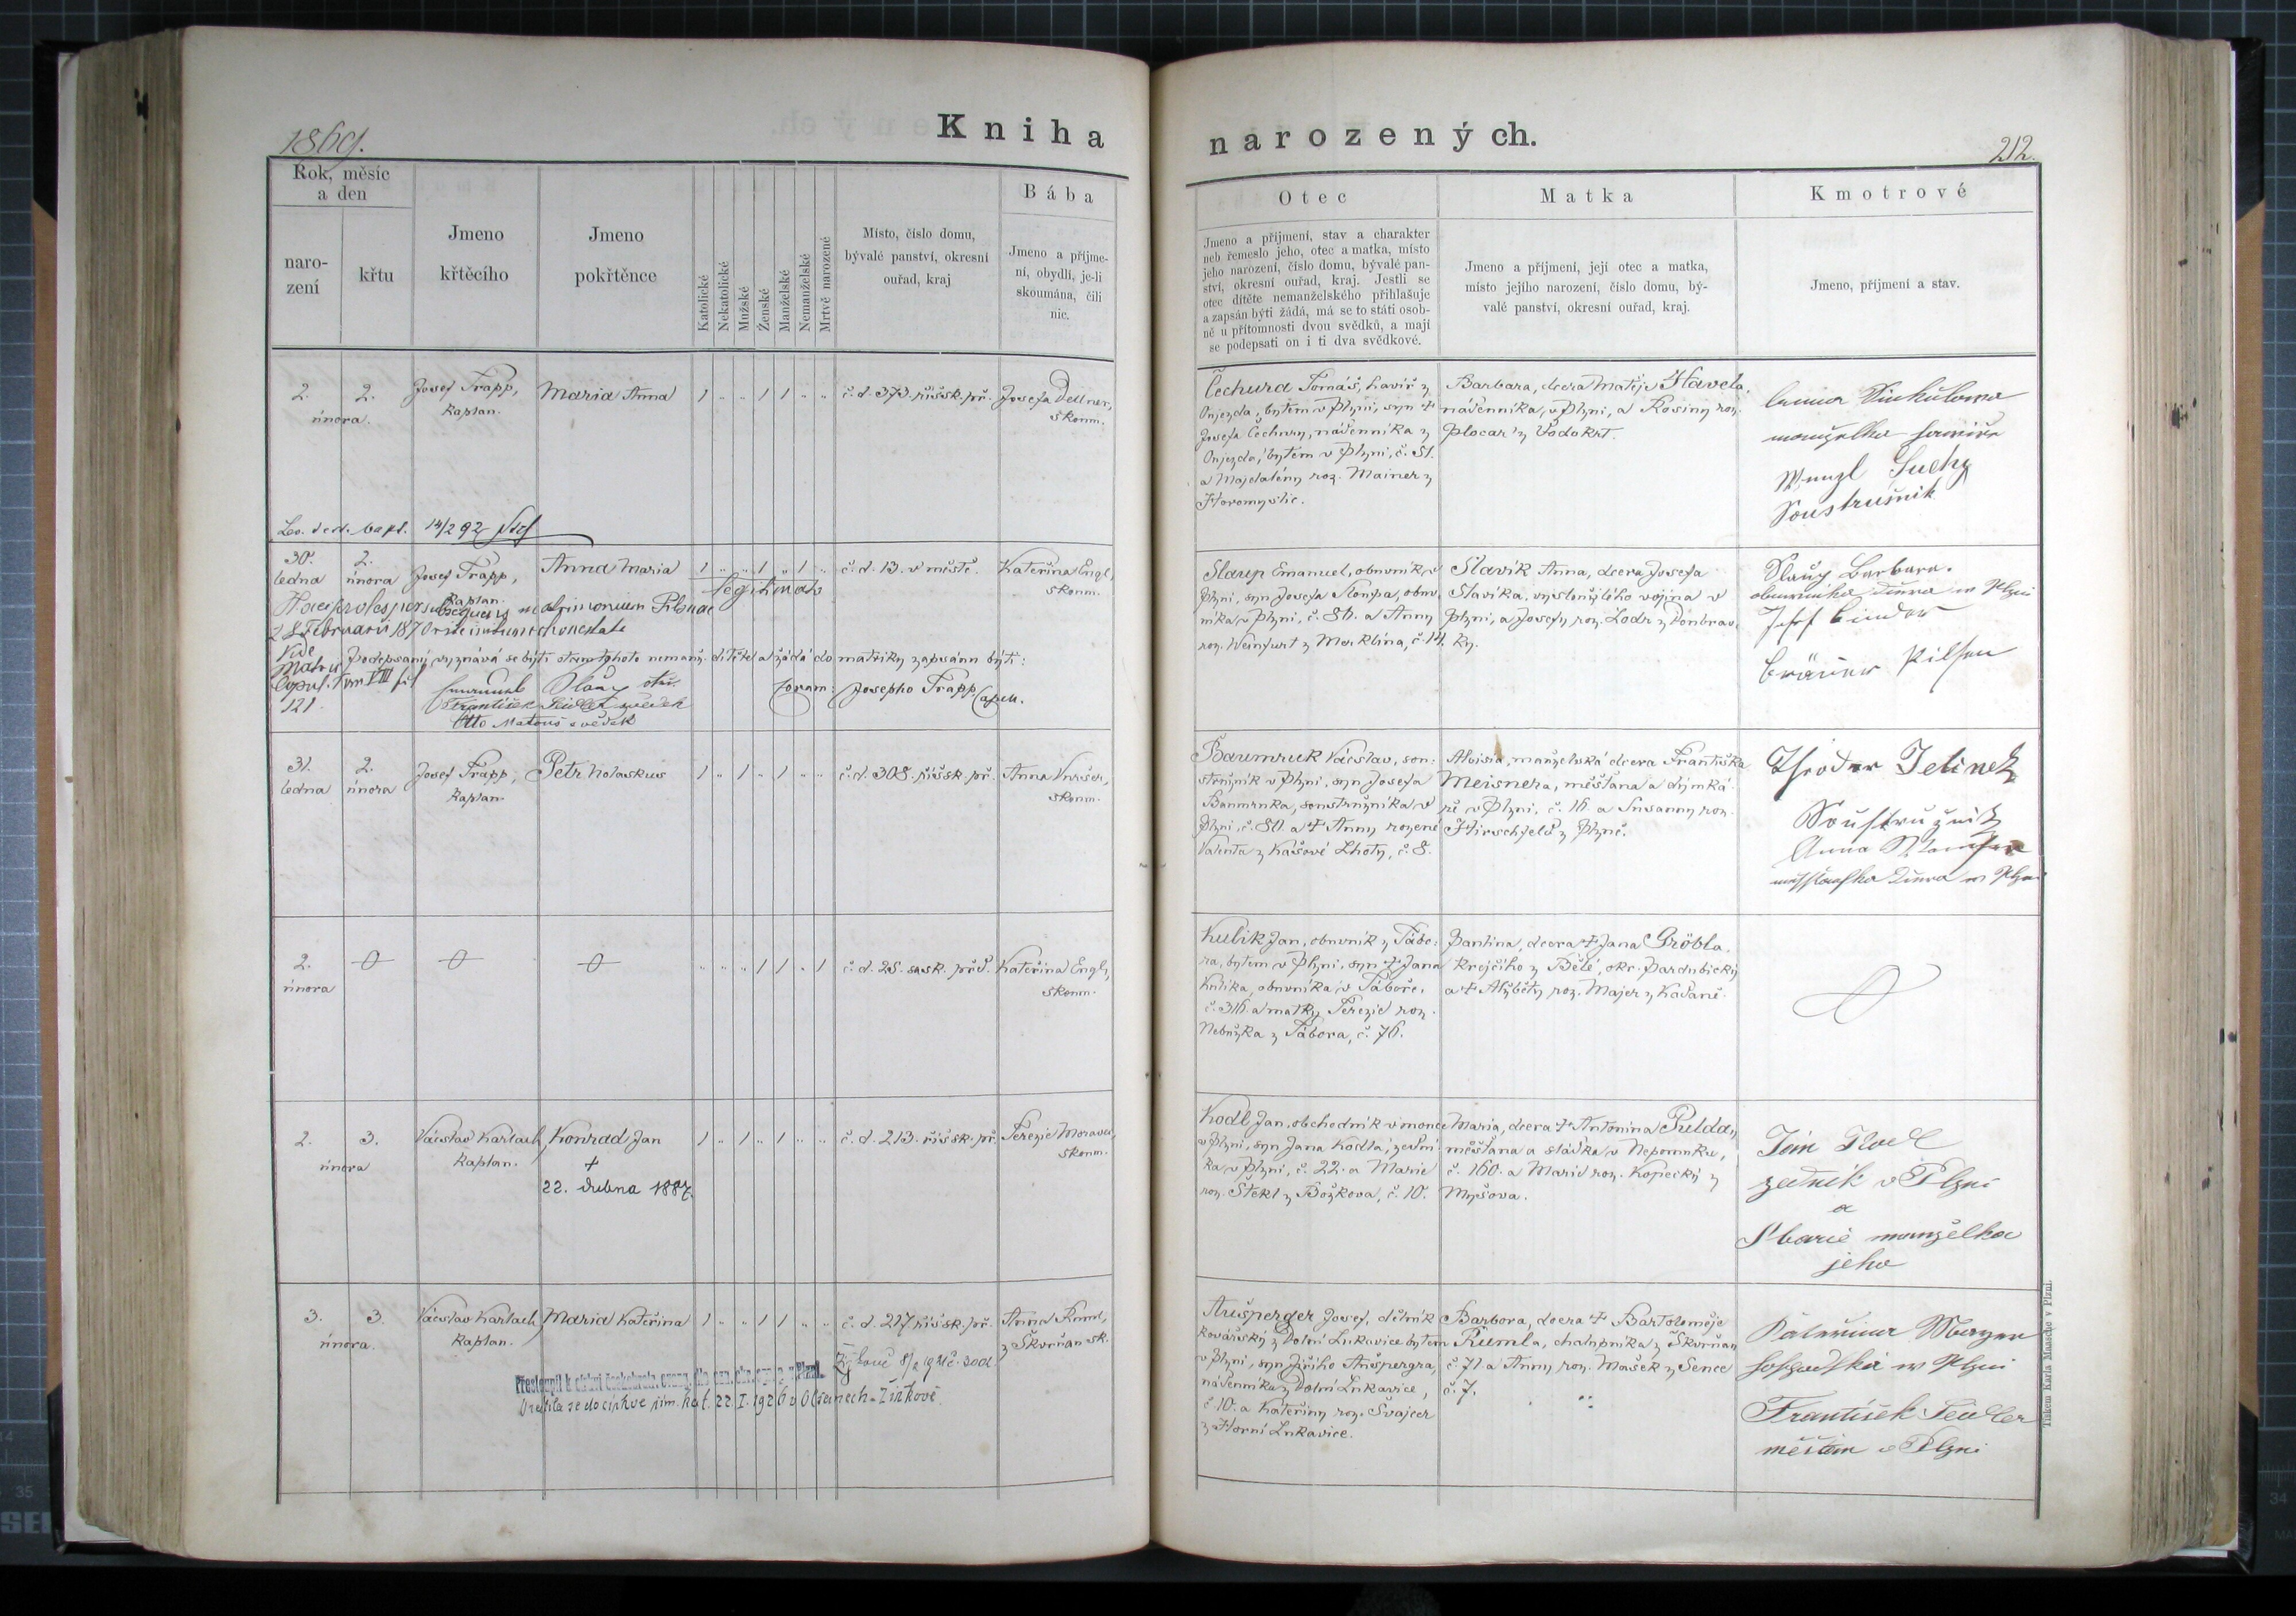 1869.
Kniha
narozených.
212.
Rok, měsíc
a den
naro-
zení
křtu
Jmeno
křtěcího
Jmeno
pokřtěnce
Katolické
Nekatolické
Mužské
Ženské
Manželské
Nemanželské
Mrtvě narozené
Místo, číslo domu,
bývalé panství, okresní
ouřad, kraj
Bába
Jmeno a příjme-
ní, obydlí, je-li
skoumána, čili
nic.
Otec
Jmeno a příjmení, stav a charakter
neb řemeslo jeho, otec a matka, místo
jeho narození, číslo domu, bývalé pan-
ství, okresní ouřad, kraj. Jestli se
otec dítěte nemanželského přihlašuje
a zapsán býti žádá, má se to státi osob-
ně u přítomnosti dvou svědků, a mají
se podepsati on i ti dva svědkové.
Matka
Jmeno a příjmení, její otec a matka,
místo jejího narození, číslo domu, bý-
valé panství, okresní ouřad, kraj.
Kmotrové
Jmeno, příjmení a stav.
2. 2.
února.
Josef Trapp,
kaplan.
Maria Anna
1 " " 1 1 " "
č. d. 373. říšsk. př.
Josefa Dellner,
skoum.
Čechura Tomáš, havíř z
Oujezda, bytem v Plzni, syn †
Josefa Čechury, nádenníka z
Oujezda, bytem v Plzni, č. 81.
a Majdalény roz. Mainer z
Horomyslic.
Barbara, dcera Matěje Havela,
nádenníka v Plzni, a Rosiny roz.
Plocar z Vodokrt.
manželka
Wenzl Suchy
Soustružnik
14/2 92
30. ledna
2. února
Josef Trapp,
kaplan.
Anna Maria
1 " " 1 " 1 "
legitimata
č. d. 13. v městě.
Kateřina Engl,
skoum.
Haec proles per subsequens matrimonium Pilsnae
28 Februarii 1870
Vide
Matric
Copul. Tom VIII fol
121
Podepsaný vyznává se býti otcem tohoto nemanž. dítěte a žádá do matriky zapsánu býti:
Coram: Josepho Trapp Capell.
František svědek
Otto Matouš svědek
Slaup Emanuel, obuvník v
Plzni, syn Josefa Sloupa, obuv
níka v Plzni, č. 80. a Anny
roz. Weinfurt z Merklína, č. 14.
Slavík Anna, dcera Josefa
Slavíka, vysloužilého vojína v
Plzni, a Josefy roz. Lodr z Doubrav
ky.
Barbara.
Josef Binder
Bräuer Pilsen
31. ledna
2. února
Josef Trapp,
kaplan.
Petr Nolaskus
1 " 1 " 1 " "
č. d. 308. říšsk. př.
Anna
skoum.
Baumruk Václav, sou:
stružník v Plzni, syn Josefa
Baumruka, soustružníka v
Plzni, č. 80. a † Anny rozené
Valenta z Kašové Lhoty, č. 8.
Aloisia, manželská dcera Františka
Meisnera, měšťana a dýmka
ře v Plzni, č. 16. a Susanny roz.
Hirschfeld z Plzně.
Theodor Jelinek
Soustružnik
Anna
2. února
" " " 1 1 " 1
č. d. 28. sask. před.
Kateřina Engl,
skoum.
Kulík Jan, obuvník z Tábo:
ra, bytem v Plzni, syn † Jana
Kulíka, obuvníka v Táboře,
č. 316. a matky Terezie roz.
Nebužka z Tábora, č. 76.
Paulina, dcera † Jana Gröbla,
krejčího z Bělé, okr. Pardubický
a † Alžběty roz. Majer z Kadaně.
2. 3.
února
Václav Karlach,
kaplan.
Konrad Jan
†
22. dubna 1887.
1 " 1 " 1 " "
č. d. 213. říšsk. př.
Terezie Moravec,
skoum.
Kodl Jan, obchodník v mouce
v Plzni, syn Jana Kodla, zední
ka v Plzni, č. 22. a Marie
roz. Štekl z Božkova, č. 10.
Maria, dcera † Antonína Puldy,
měšťana a sládka v Nepomuku,
č. 160. a Marie roz. Kopecký z
Myšova.
Jan Kodl
zedník v Plzni
a
Marie manželka
jeho
3. 3.
února.
Václav Karlach,
kaplan.
Maria Kateřina
1 " " 1 1 " "
č. d. 217. říšsk. př.
Anna
z Skvrňan sk.
Vrátila se do církve řím. kat. 22. I. 1926
Aušperger Josef, dělník
kovářský z Dolní Lukavice bytem
v Plzni, syn Jiřího Aušpergra,
nádenníka z Dolní Lukavice,
č. 10. a Kateřiny roz. Švajcer
z Horní Lukavice.
Barbora, dcera † Bartoloměje
Rumla, chalupníka z Skvrňan
č. 71. a Anny roz. Mašek z Sence
č. 7.
Kateřina Mayer
František
měšťan v Plzni
Tiskem Karla Maasche v Plzni.